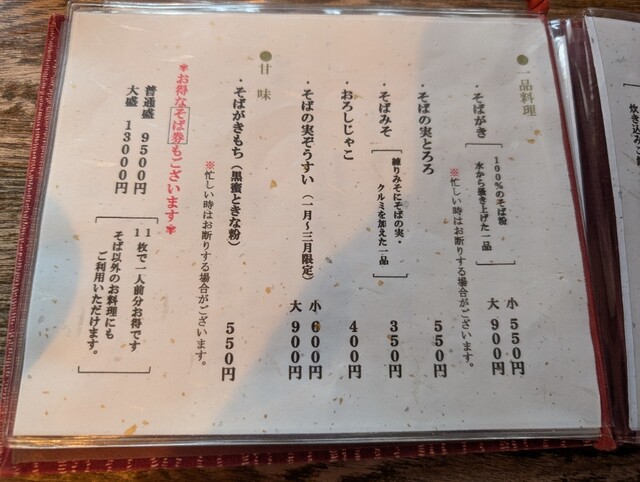 ●一品料理
・そばがき
100%のそば粉
水から掻き上げた一品
小 550円
大 900円
※忙しい時はお断りする場合がございます。
・そばの実とろろ
550円
・そばみそ
練りみそにそばの実・
クルミを加えた一品
350円
・おろしじゃこ
400円
・そばの実ぞうすい(一月～三月限定)
小 600円
大 900円
●甘味
・そばがきもち(黒蜜ときな粉)
550円
※忙しい時はお断りする場合がございます。
＊お得なそば券もございます＊
普通盛 9500円
大盛 13000円
11枚で一人前分お得です
そば以外のお料理にも
ご利用いただけます。